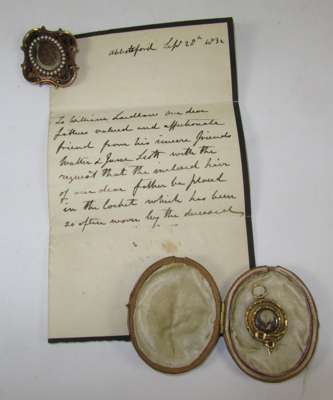 Abbotsford Sept 28th 1832
To William Laidlaw our dear
Fathers valued and affectionate
friend from his sincere friends
Walter & Jane Scott with the
request that the enclosed hair
of our dear father be placed
in the locket which has been
so often worn by the deceased